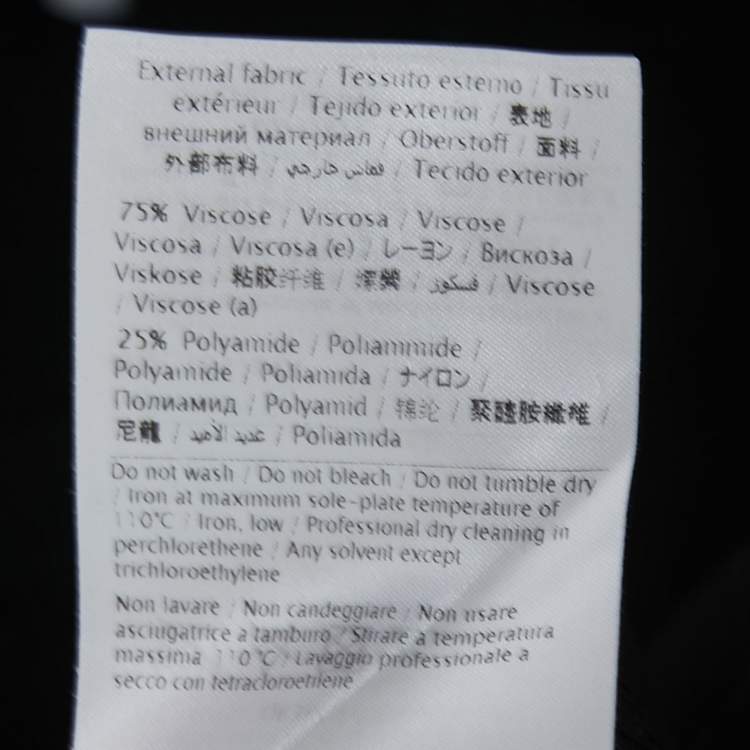 External fabric / Tessuto esterno / Tissu
extérieur / Tejido exterior / 表地 /
внешний материал / Oberstoff / 面料 /
外部布料 / قماش خارجي / Tecido exterior
75% Viscose / Viscosa / Viscose /
Viscosa / Viscosa (e) / レーヨン / Вискоза /
Viskose / 粘胶纤维 / 嫘縈 / فسكوز / Viscose
/ Viscose (a)
25% Polyamide / Poliammide /
Polyamide / Poliamida / ナイロン /
Полиамид / Polyamid / 锦纶 / 聚醯胺纖維 /
尼龍 / عديد الأميد / Poliamida
Do not wash / Do not bleach / Do not tumble dry
/ Iron at maximum sole-plate temperature of
110°C / Iron, low / Professional dry cleaning in
perchlorethene / Any solvent except
trichloroethylene
Non lavare / Non candeggiare / Non usare
asciugatrice a tamburo / Stirare a temperatura
massima 110°C / Lavaggio professionale a
secco con tetracloroetilene